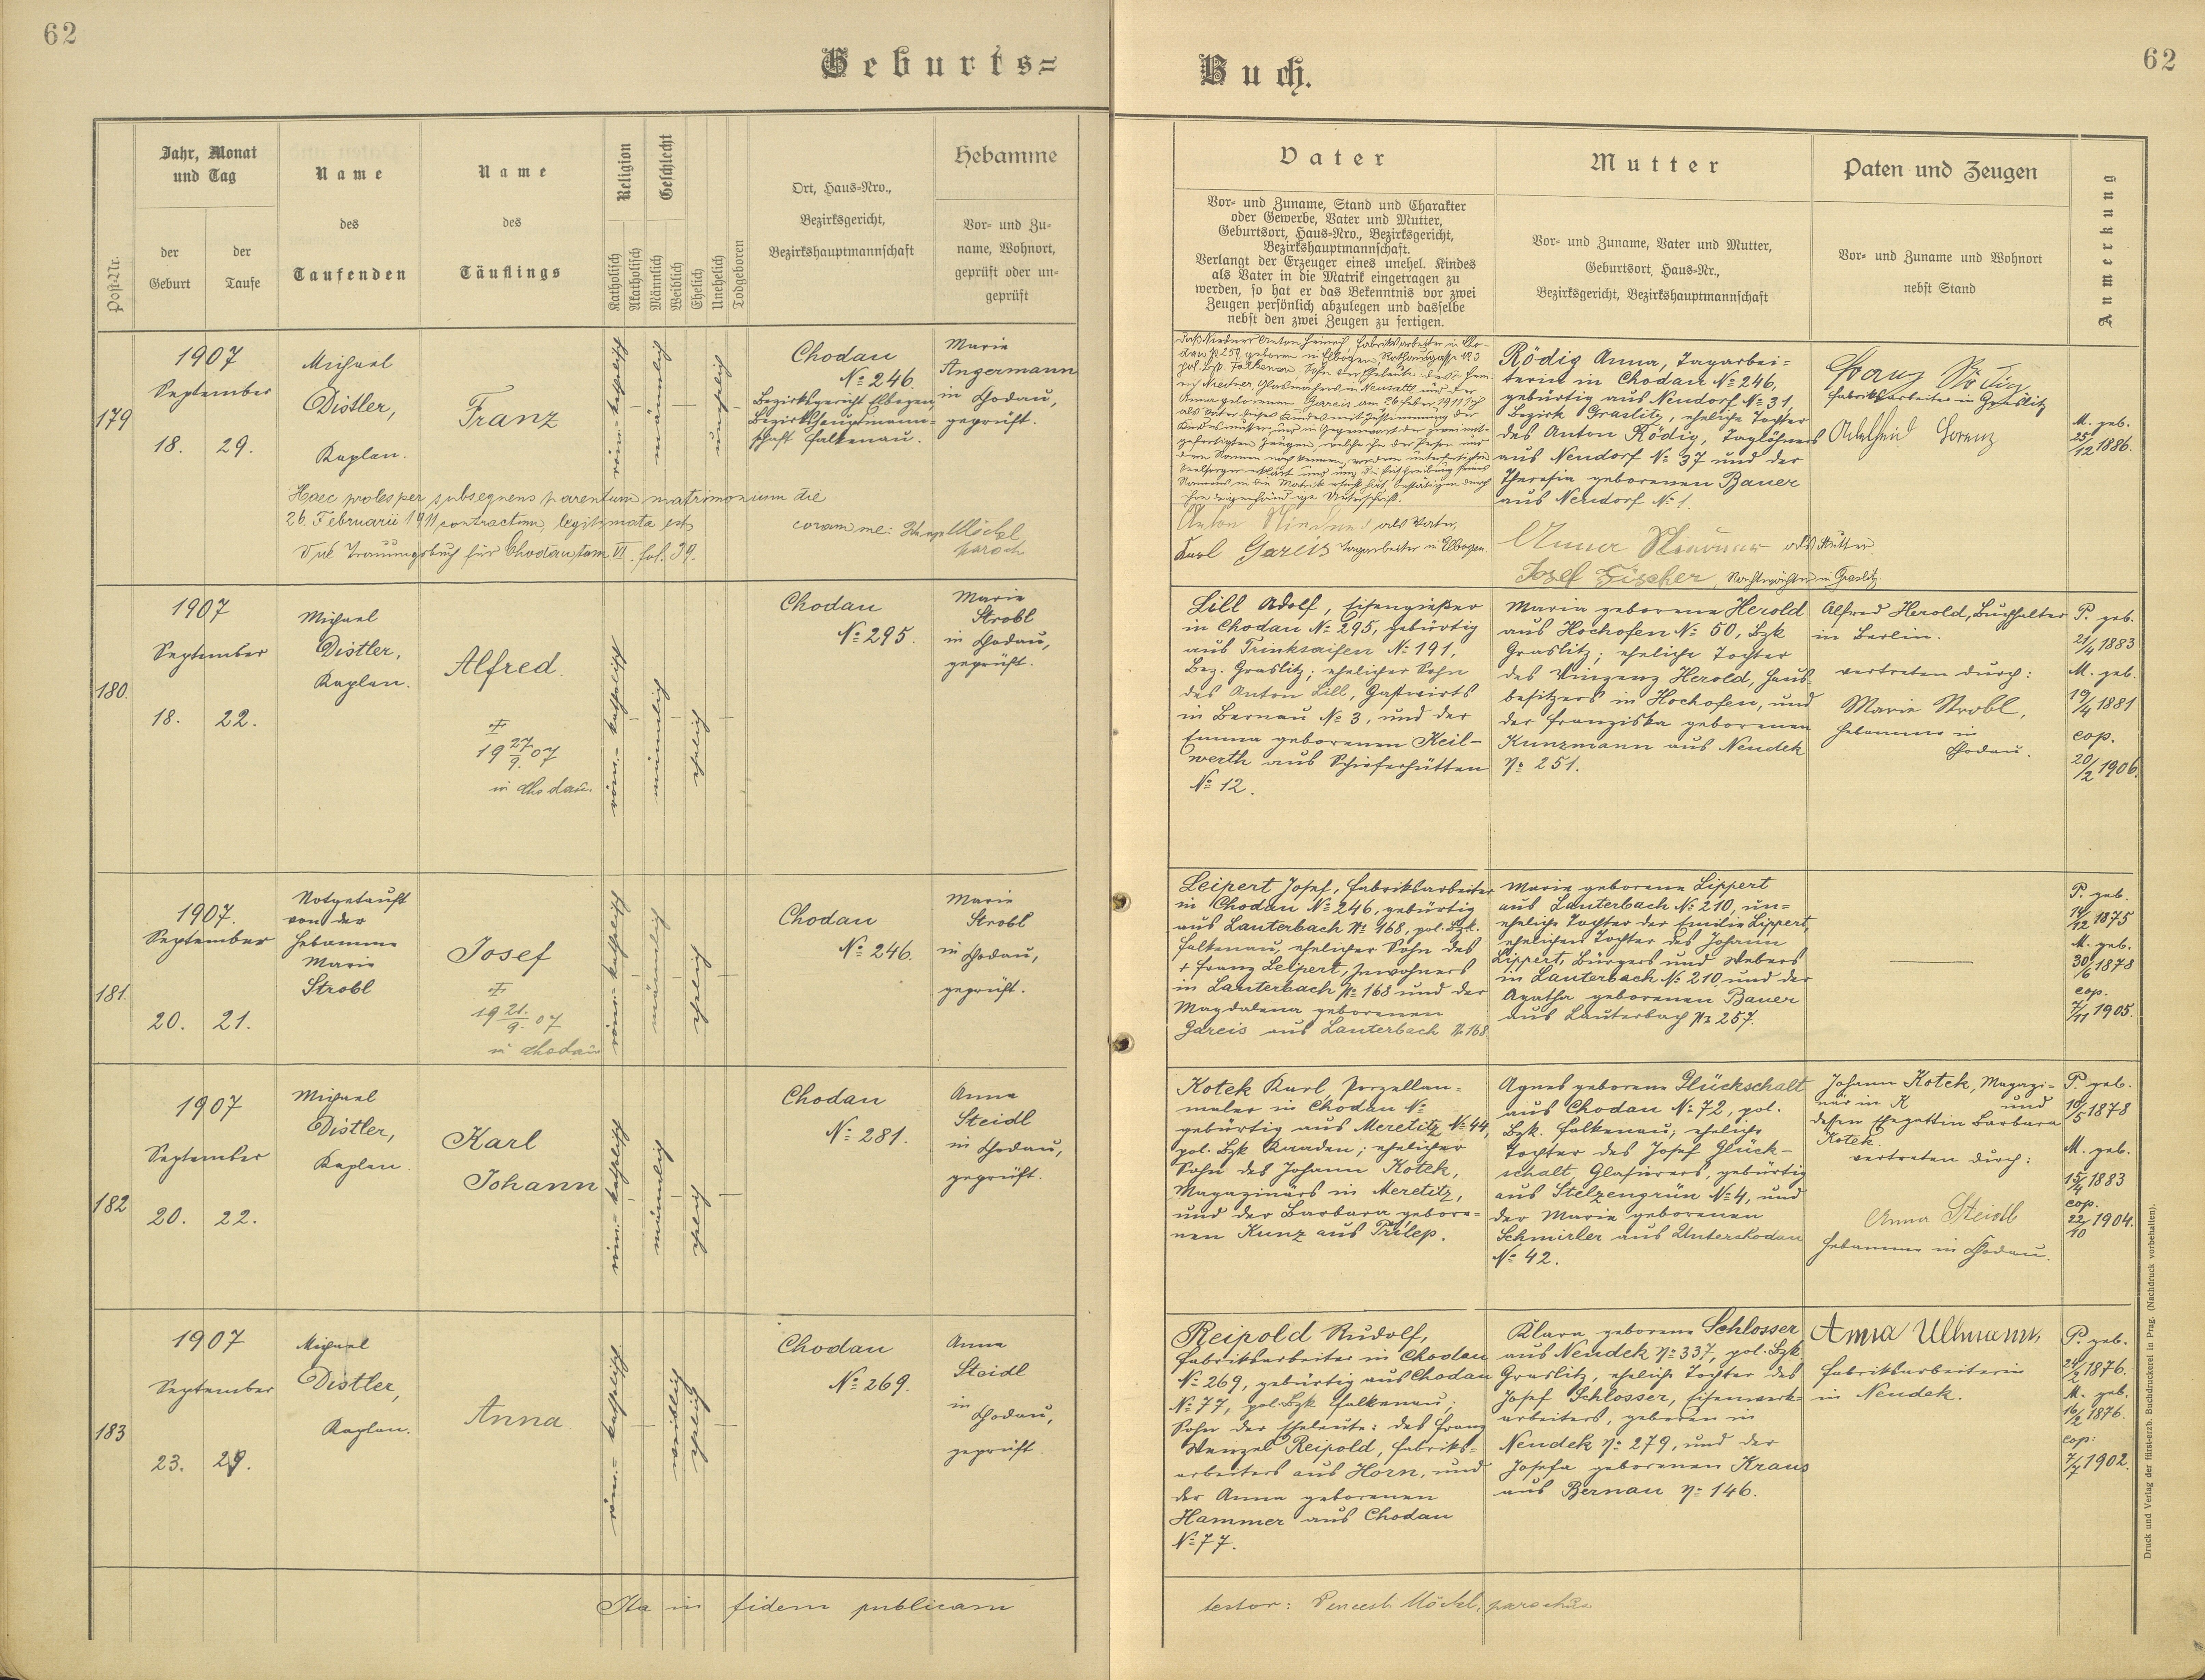 62
Geburts=
Buch.
62
Post-Nr.
Jahr, Monat
und Tag
der
Geburt
der
Taufe
Name
des
Taufenden
Name
des
Täuflings
Religion
Katholisch
Akatholisch
Geschlecht
Männlich
Weiblich
Ehelich
Unehelich
Todgeboren
Ort, Haus=Nro.,
Bezirksgericht,
Bezirkshauptmannschaft
Hebamme
Vor= und Zu=
name, Wohnort,
geprüft oder un=
geprüft
Vater
Vor= und Zuname, Stand und Charakter
oder Gewerbe, Vater und Mutter,
Geburtsort, Haus=Nro., Bezirksgericht,
Bezirkshauptmannschaft.
Verlangt der Erzeuger eines unehel. Kindes
als Vater in die Matrik eingetragen zu
werden, so hat er das Bekenntnis vor zwei
Zeugen persönlich abzulegen und dasselbe
nebst den zwei Zeugen zu fertigen.
Mutter
Vor= und Zuname, Vater und Mutter,
Geburtsort, Haus=Nr.,
Bezirksgericht, Bezirkshauptmannschaft
Paten und Zeugen
Vor= und Zuname und Wohnort
nebst Stand
Anmerkung
179
1907
September
18. 29.
Michael
Distler,
Kaplan.
Franz
röm.- katholisch
männlich
unehelich
Chodau
No 246.
Bezirksgericht Elbogen,
Bezirkshauptmann=
schaft Falkenau.
Marie
Angermann
in Chodau,
geprüft.
Haec proles per subsequens parentum matrimonium die
26. Februarii 1911 contractum, legitimata est
Vide Trauungsbuch für Chodau tom VI. fol. 39.
coram me: Möckl
paroch
als Vater,
Karl Gareis Tagarbeiter in Elbogen.
Rödig Anna, Tagarbei=
terin in Chodau No 246,
gebürtig aus Neudorf No 31,
Bezirk Graslitz, eheliche Tochter
des Anton Rödig, Taglöhners
aus Neudorf No 37 und der
Theresia geborenen Bauer
aus Neudorf No 1.
Anna als Mutter
Josef Fischer, Nachtwächter in Graslitz.
Fabriksarbeiter in Graslitz
Adelheid Lorenz
M. geb.
25/12 1886.
180.
1907
September
18. 22.
Michael
Distler,
Kaplan.
Alfred.
†
19 27/9. 07
in Chodau.
röm.- katholisch
männlich
ehelich
Chodau
No 295.
Marie
Strobl
in Chodau,
geprüft.
Lill Adolf, Eisengießer
in Chodau No 295, gebürtig
aus Trinksaifen No 191,
Bez. Graslitz; ehelicher Sohn
des Anton Lill, Gastwirts
in Bernau No 3, und der
Emma geborenen Keil-
werth aus Schieferhütten
No 12.
Maria geborene Herold
aus Hochofen No 50, Bzk
Graslitz; eheliche Tochter
des Vinzenz Herold, Haus=
besitzers in Hochofen, und
der Franziska geborenen
Kunzmann aus Neudek
No 251.
Alfred Herold, Buchhalter
in Berlin.
vertreten durch:
Marie Strobl,
Hebamme in
Chodau.
P. geb.
21/4 1883
M. geb.
19/4 1881
cop.
20/2 1906.
181.
1907.
September
20. 21.
Notgetauft
von der
Hebamme
Marie
Strobl
Josef
†
19 21./9. 07
in Chodau
röm.- katholisch
männlich
ehelich
Chodau
No 246.
Marie
Strobl
in Chodau,
geprüft.
Leipert Josef, Fabriksarbeiter
in Chodau No 246, gebürtig
aus Lauterbach No 168, pol. Bzk.
Falkenau, ehelicher Sohn des
† Franz Leipert, Inwohners
in Lauterbach No 168 und der
Magdalena geborenen
Gareis aus Lauterbach No 168
Marie geborene Lippert
aus Lauterbach No 210, un=
eheliche Tochter der Emilie Lippert,
ehelichen Tochter des Johann
Lippert, Bürgers und Webers
in Lauterbach No 210, und der
Agatha geborenen Bauer
aus Lauterbach No 257.
P. geb.
14/12 1875
M. geb.
30/6 1878
cop.
7/11 1905.
182
1907
September
20. 22.
Michael
Distler,
Kaplan.
Karl
Johann
röm.- katholisch
männlich
ehelich
Chodau
No 281.
Anna
Steidl
in Chodau,
geprüft.
Kotek Karl, Porzellan=
maler in Chodau No
gebürtig aus Meretitz No 44,
pol. Bzk Kaaden; ehelicher
Sohn des Johann Kotek,
Magazinärs in Meretitz,
und der Barbara gebore=
nen Kunz aus Přílep.
Agnes geborene Glückschalt
aus Chodau No 72, pol.
Bzk. Falkenau; eheliche
Tochter des Josef Glück-
schalt, Glasürers, gebürtig
aus Stelzengrün No 4, und
der Marie geborenen
Schmirler aus Unterchodau
No 42.
Johann Kotek, Magazi=
när in K und
dessen Ehegattin Barbara
Kotek.
vertreten durch:
Anna Steidl
Hebamme in Chodau.
P. geb.
10/5 1878
M. geb.
15/4 1883
cop.
22/10 1904.
183
1907
September
23. 29.
Michael
Distler,
Kaplan.
Anna
röm.- katholisch
weiblich
ehelich
Chodau
No 269.
Anna
Steidl
in
Chodau,
geprüft.
Reipold Rudolf,
Fabriksarbeiter in Chodau
No 269, gebürtig aus Chodau
No 77, pol. Bzk Falkenau;
Sohn der Eheleute: des Franz
Wenzel Reipold, Fabriks=
arbeiters aus Horn, und
der Anna geborenen
Hammer aus Chodau
No 77.
Klara geborene Schlosser
aus Neudek No 337, pol. Bzk
Graslitz, eheliche Tochter des
Josef Schlosser, Eisenwerk=
arbeiters, geboren in
Neudek No 279, und der
Josefa geborenen Kraus
aus Bernau No 146.
Anna Ullmann,
Fabriksarbeiterin
in Neudek.
P. geb.
24/2 1876.
M. geb.
16/2 1876.
cop:
7/7 1902.
Ita in fidem publicam
testor: Möckl, parochus
Druck und Verlag der fürst-erzb. Buchdruckerei in Prag. (Nachdruck vorbehalten).